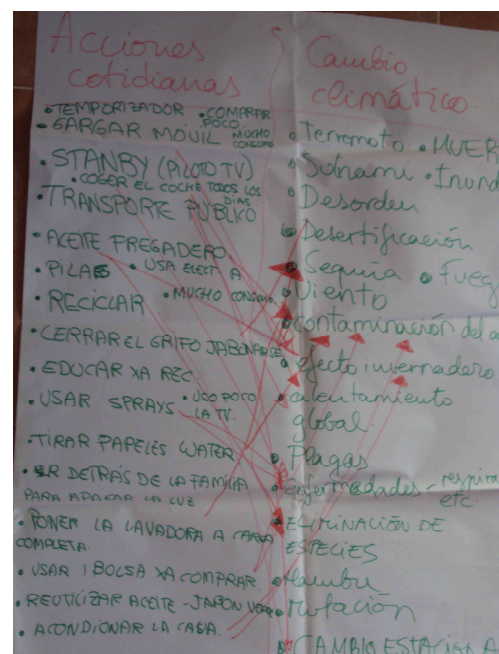 Acciones
cotidianas
• TEMPORIZADOR • COMPRAR POCO
• CARGAR MÓVIL MUCHO CONSUMO
• STANBY (PILOTO TV)
• COGER EL COCHE TODOS LOS DÍAS
• TRANSPORTE PÚBLICO
• ACEITE FREGADERO.
• PILAS • USA ELECT. A
• RECICLAR • MUCHO CONSUMO.
• CERRAR EL GRIFO JABONARSE
• EDUCAR XA REC.
• USAR SPRAYS • UCO POCO LA TV.
• TIRAR PAPELES WATER
• IR DETRÁS DE LA FAMILIA
PARA APAGAR LA LUZ
• PONER LA LAVADORA A CARGA
COMPLETA.
• USAR 1 BOLSA XA COMPRAR.
• REUTILIZAR ACEITE - JABÓN
• ACONDIONAR LA CASA.
Cambio
climático.
• Terremoto • MUER
• Sunami • Inund
• Desorden
• Desertificación
• Sequía • Fueg
• Viento
• contaminación del a
• efecto invernadero
• calentamiento
global.
• Plagas
• enfermedades - respira
etc.
• ELIMINACIÓN DE
ESPECIES
• Hambre
• Mutación
• CAMBIO ESTACIÓN A